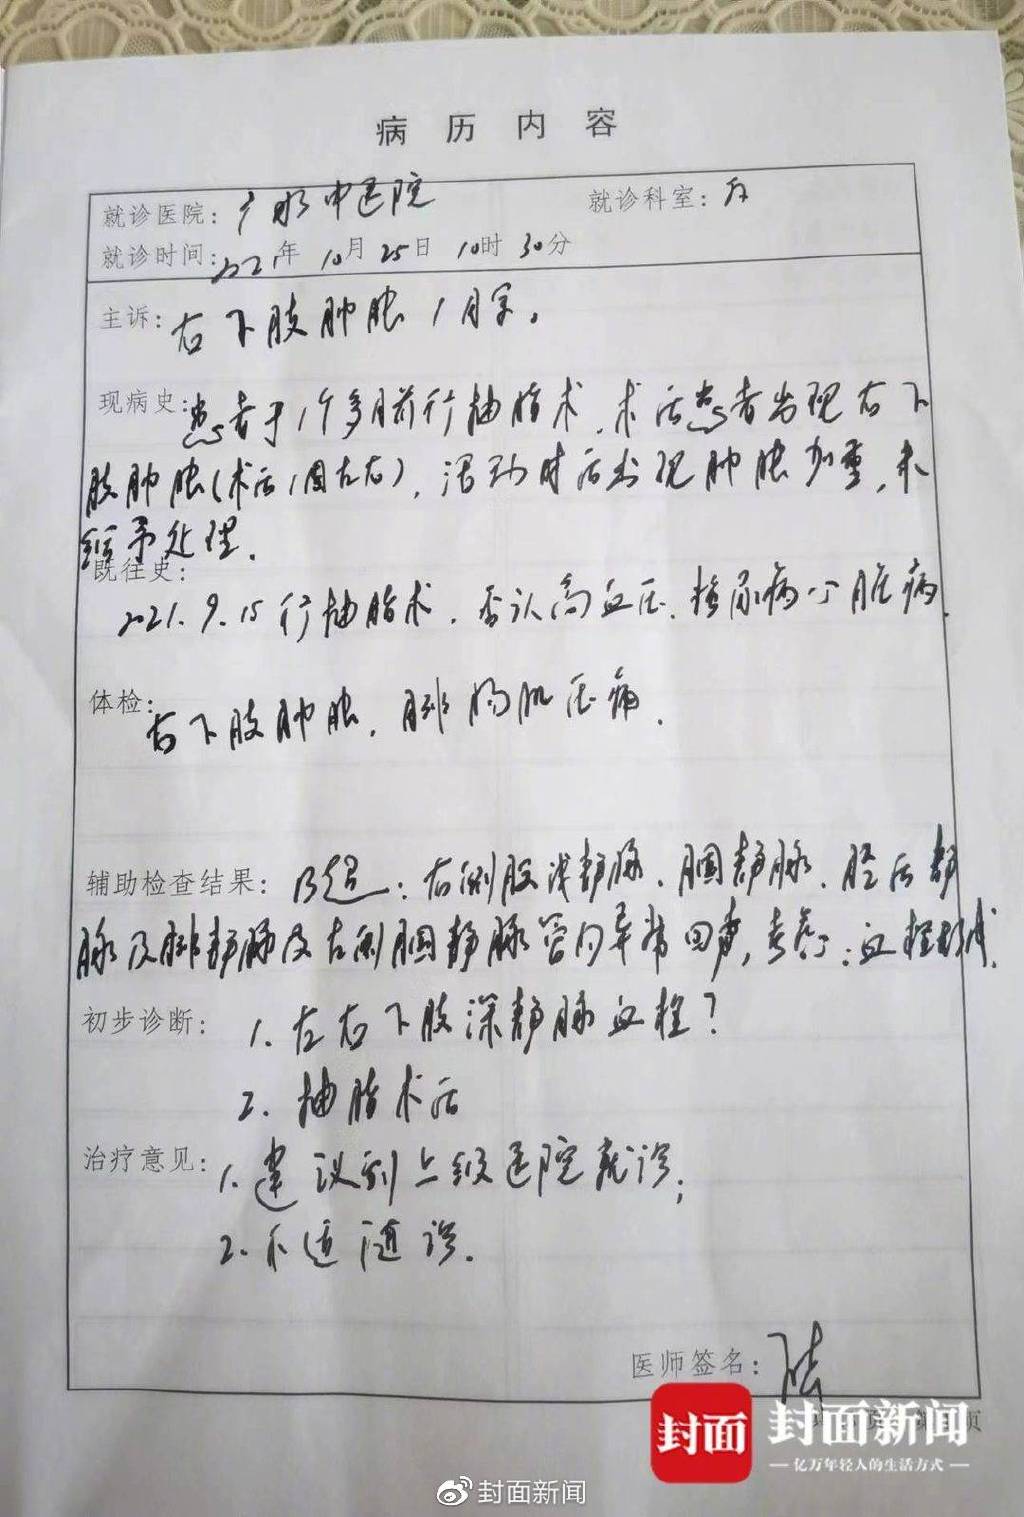 病历内容
就诊医院：广水中医院 就诊科室：
就诊时间：2021年10月25日10时30分
主诉：右下肢肿胀1月余。
现病史：患者于1个多月前行抽脂术，术后患者出现右下
肢肿胀（术后1周左右），活动时后出现肿胀加重，未
给予处理。
既往史：
2021.9.15行抽脂术。否认高血压、糖尿病、心脏病
体检：
右下肢肿胀，腓肠肌压痛。
辅助检查结果：B超：右侧股浅静脉、腘静脉、胫后静
脉及腓静脉及左侧腘静脉管内异常回声，考虑：血栓形成。
初步诊断：1.左右下肢深静脉血栓？
2.抽脂术后
治疗意见：1.建议到上级医院就诊；
2.不适随诊。
医师签名：陆
封面 封面新闻
亿万年轻人的生活方式
封面新闻